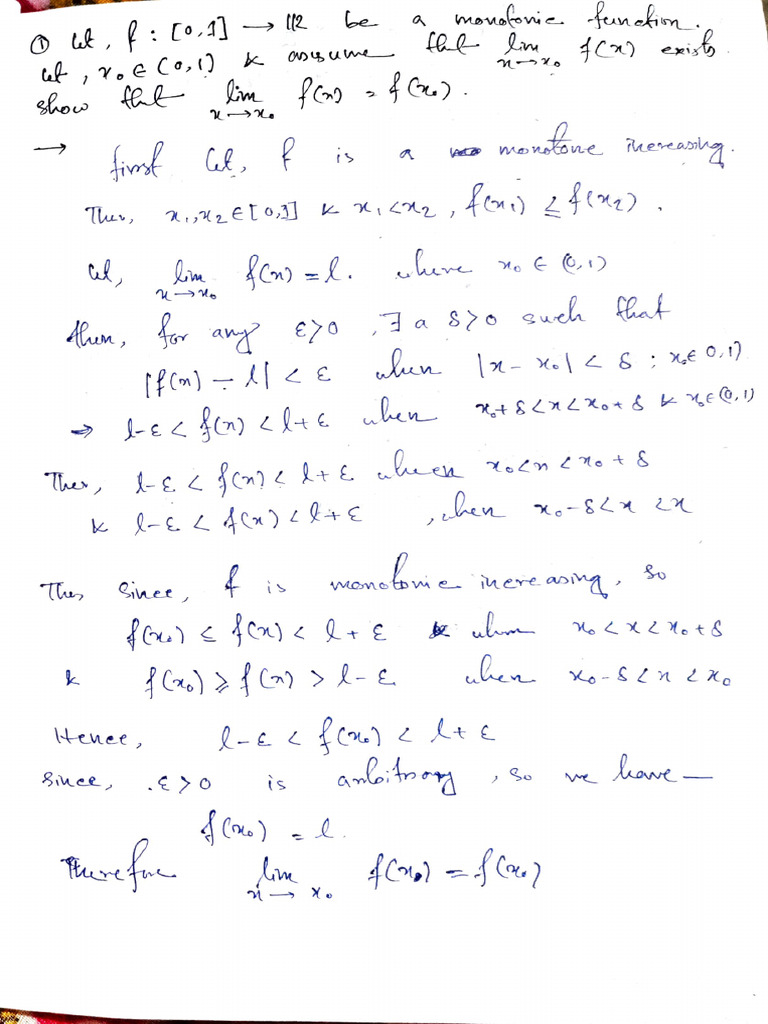 ① Let, f : [0,1] → ℝ be a monotonic function.
Let, x₀ ∈ (0,1) & assume that lim_{x→x₀} f(x) exists.
show that lim_{x→x₀} f(x) = f(x₀).
→ first Let, f is a monotone increasing.
Then, x₁,x₂ ∈ [0,1] & x₁<x₂, f(x₁) ≤ f(x₂).
Let, lim_{x→x₀} f(x) = l. where x₀ ∈ (0,1)
then, for any ε>0, ∃ a δ>0 such that
|f(x) - l| < ε when |x-x₀| < δ ; x₀∈ 0,1)
⇒ l-ε < f(x) < l+ε when x₀+δ<x<x₀+δ & x₀∈(0,1)
Then, l-ε < f(x) < l+ε when x₀<x<x₀+δ
& l-ε < f(x) < l+ε, when x₀-δ<x<x
Thus, since, f is monotonic increasing, so
f(x₀) ≤ f(x) < l+ε when x₀<x<x₀+δ
& f(x₀) ≥ f(x) > l-ε when x₀-δ<x<x₀
Hence, l-ε < f(x₀) < l+ε
since, ε>0 is arbitrary, so we have —
f(x₀) = l.
Therefore lim_{x→x₀} f(x₀) = f(x₀)